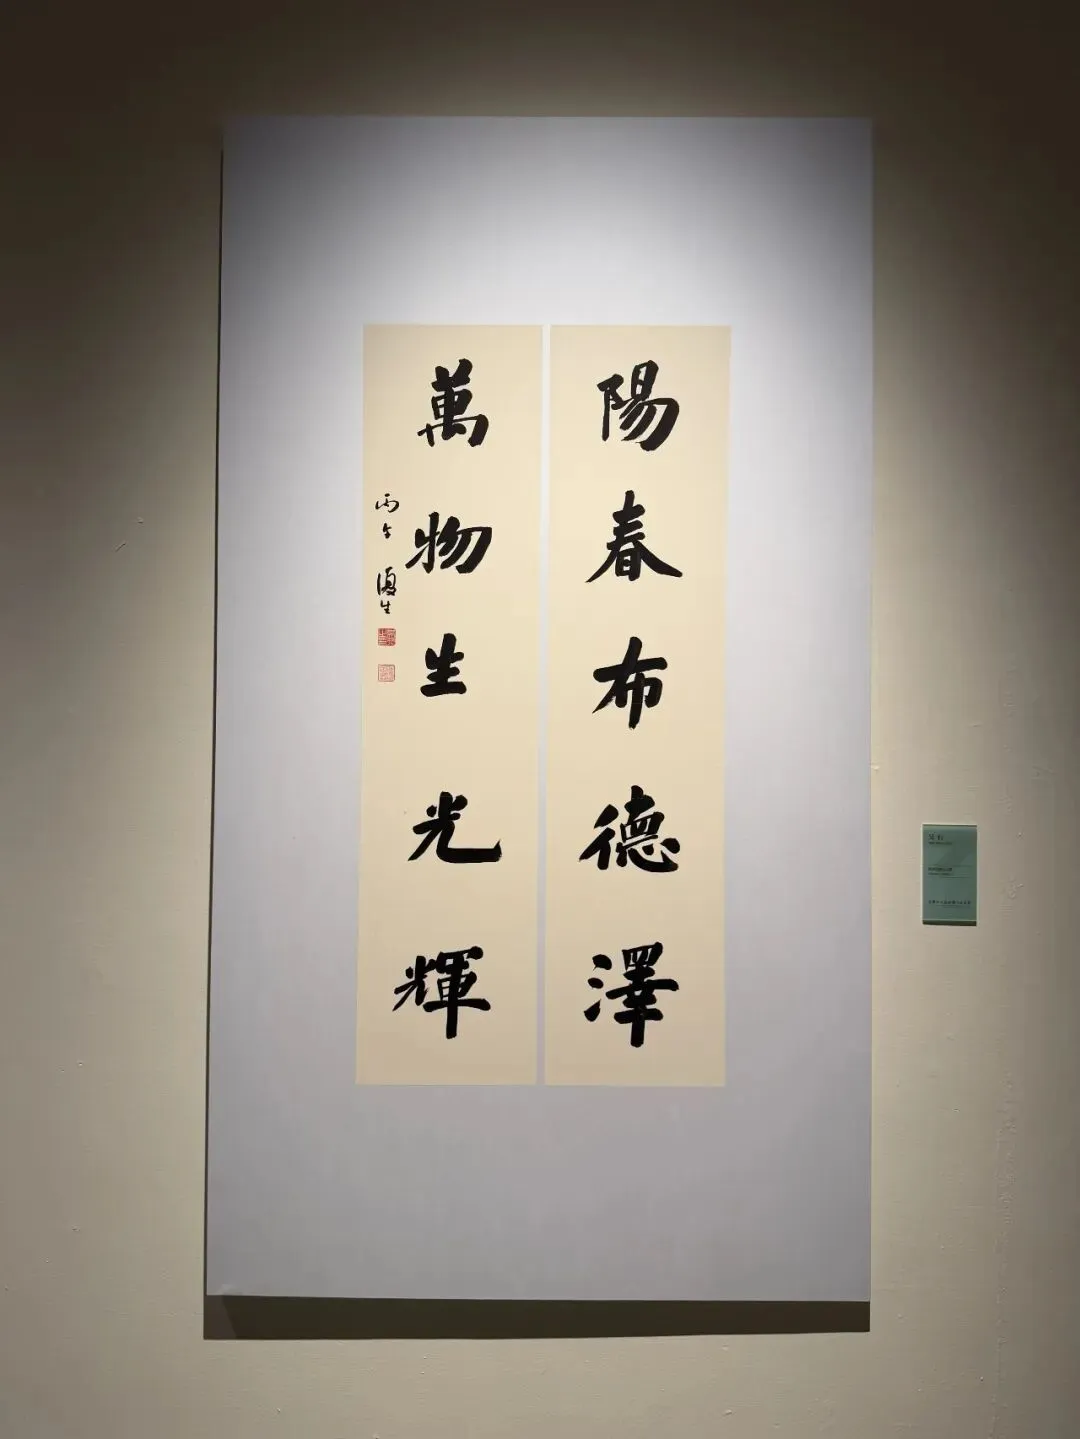 陽春布德澤
萬物生光輝
丙午